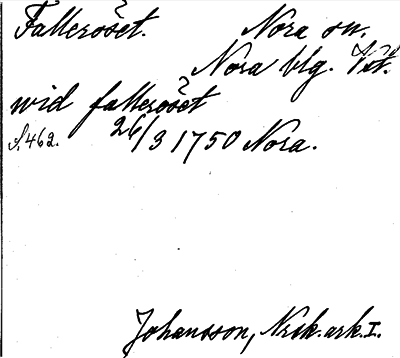 Falleröset. Nora sn.
Nora blg. Vstm.
wid falleröset
S. 462. 26/3 1750 Nora.
Johansson, Nrsk. ark. I.